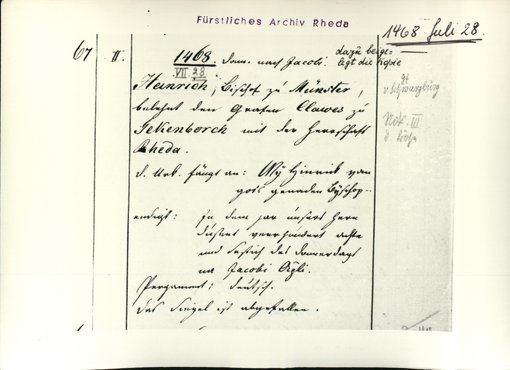 Fürstliches Archiv Rheda
1468 Juli 28.
67 II. 1468. Donn. nach Jacobi.
dazu beige-
legt die Kopie
VII 28.
Heinrich, Bischof zu Münster,
belehnt den Grafen Clawes zu
Tekenborch mit der Herrschaft
Rheda.
v. Schwarzburg
Not. III
d. Urk. fängt an: Wy Hinrick van
gots genaden Byschop-
endigt: in dem jar unsers Hern
dusent veerhundert achte
und sestich des donnerdags
na Jacobi Apli.
Pergament; deutsch.
das Siegel ist abgefallen.